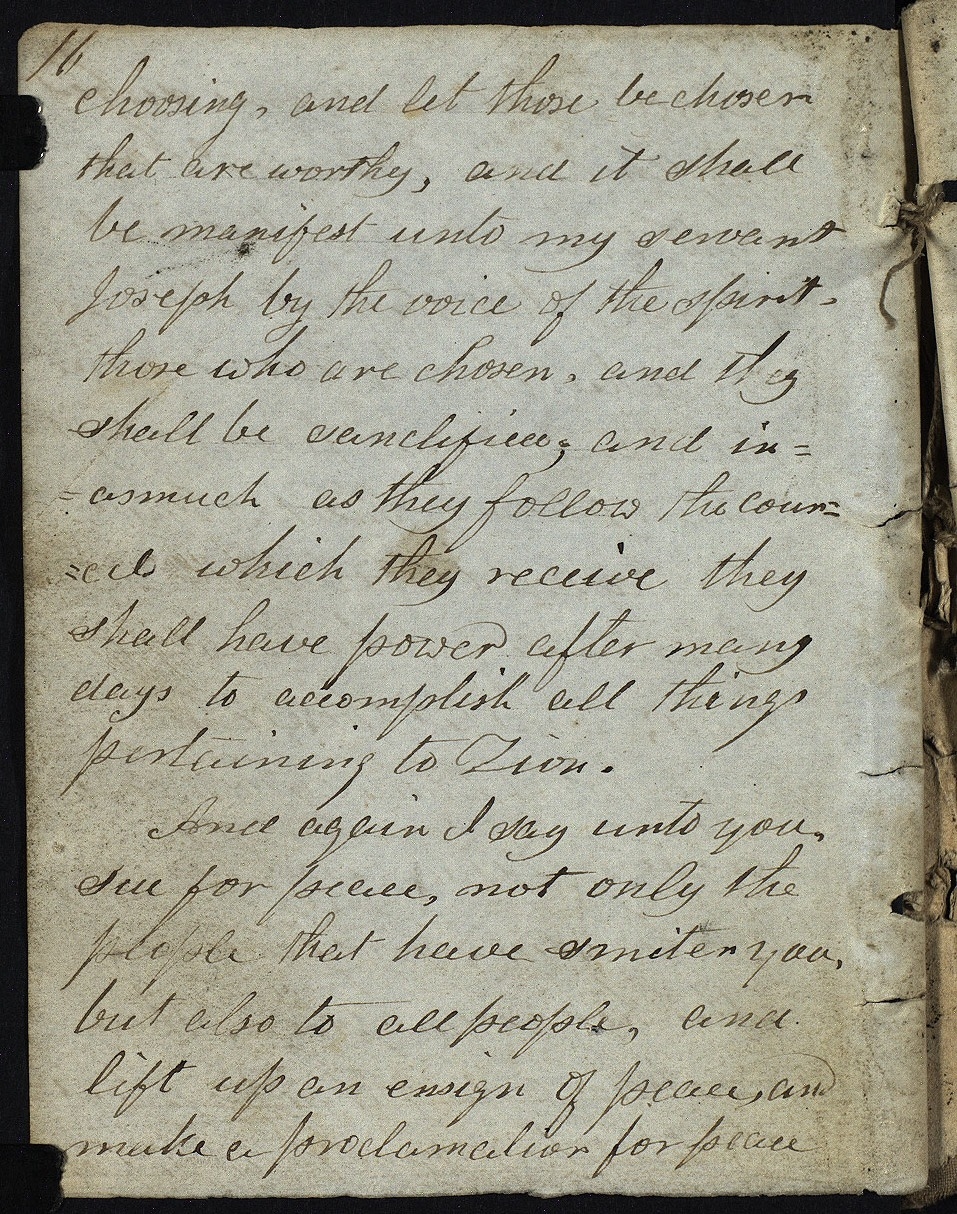 16
choosing, and let those be chosen
that are worthy, and it shall
be manifest unto my servant
Joseph by the voice of the spirit,
those who are chosen, and they
shall be sanctified; and in=
=asmuch as they follow the coun=
=cils which they receive they
shall have power after many
days to accomplish all things
pertaining to Zion.
And again I say unto you,
sue for peace, not only the
people that have smiten you,
but also to all people, and
lift up an ensign of peace, and
make a proclamation for peace